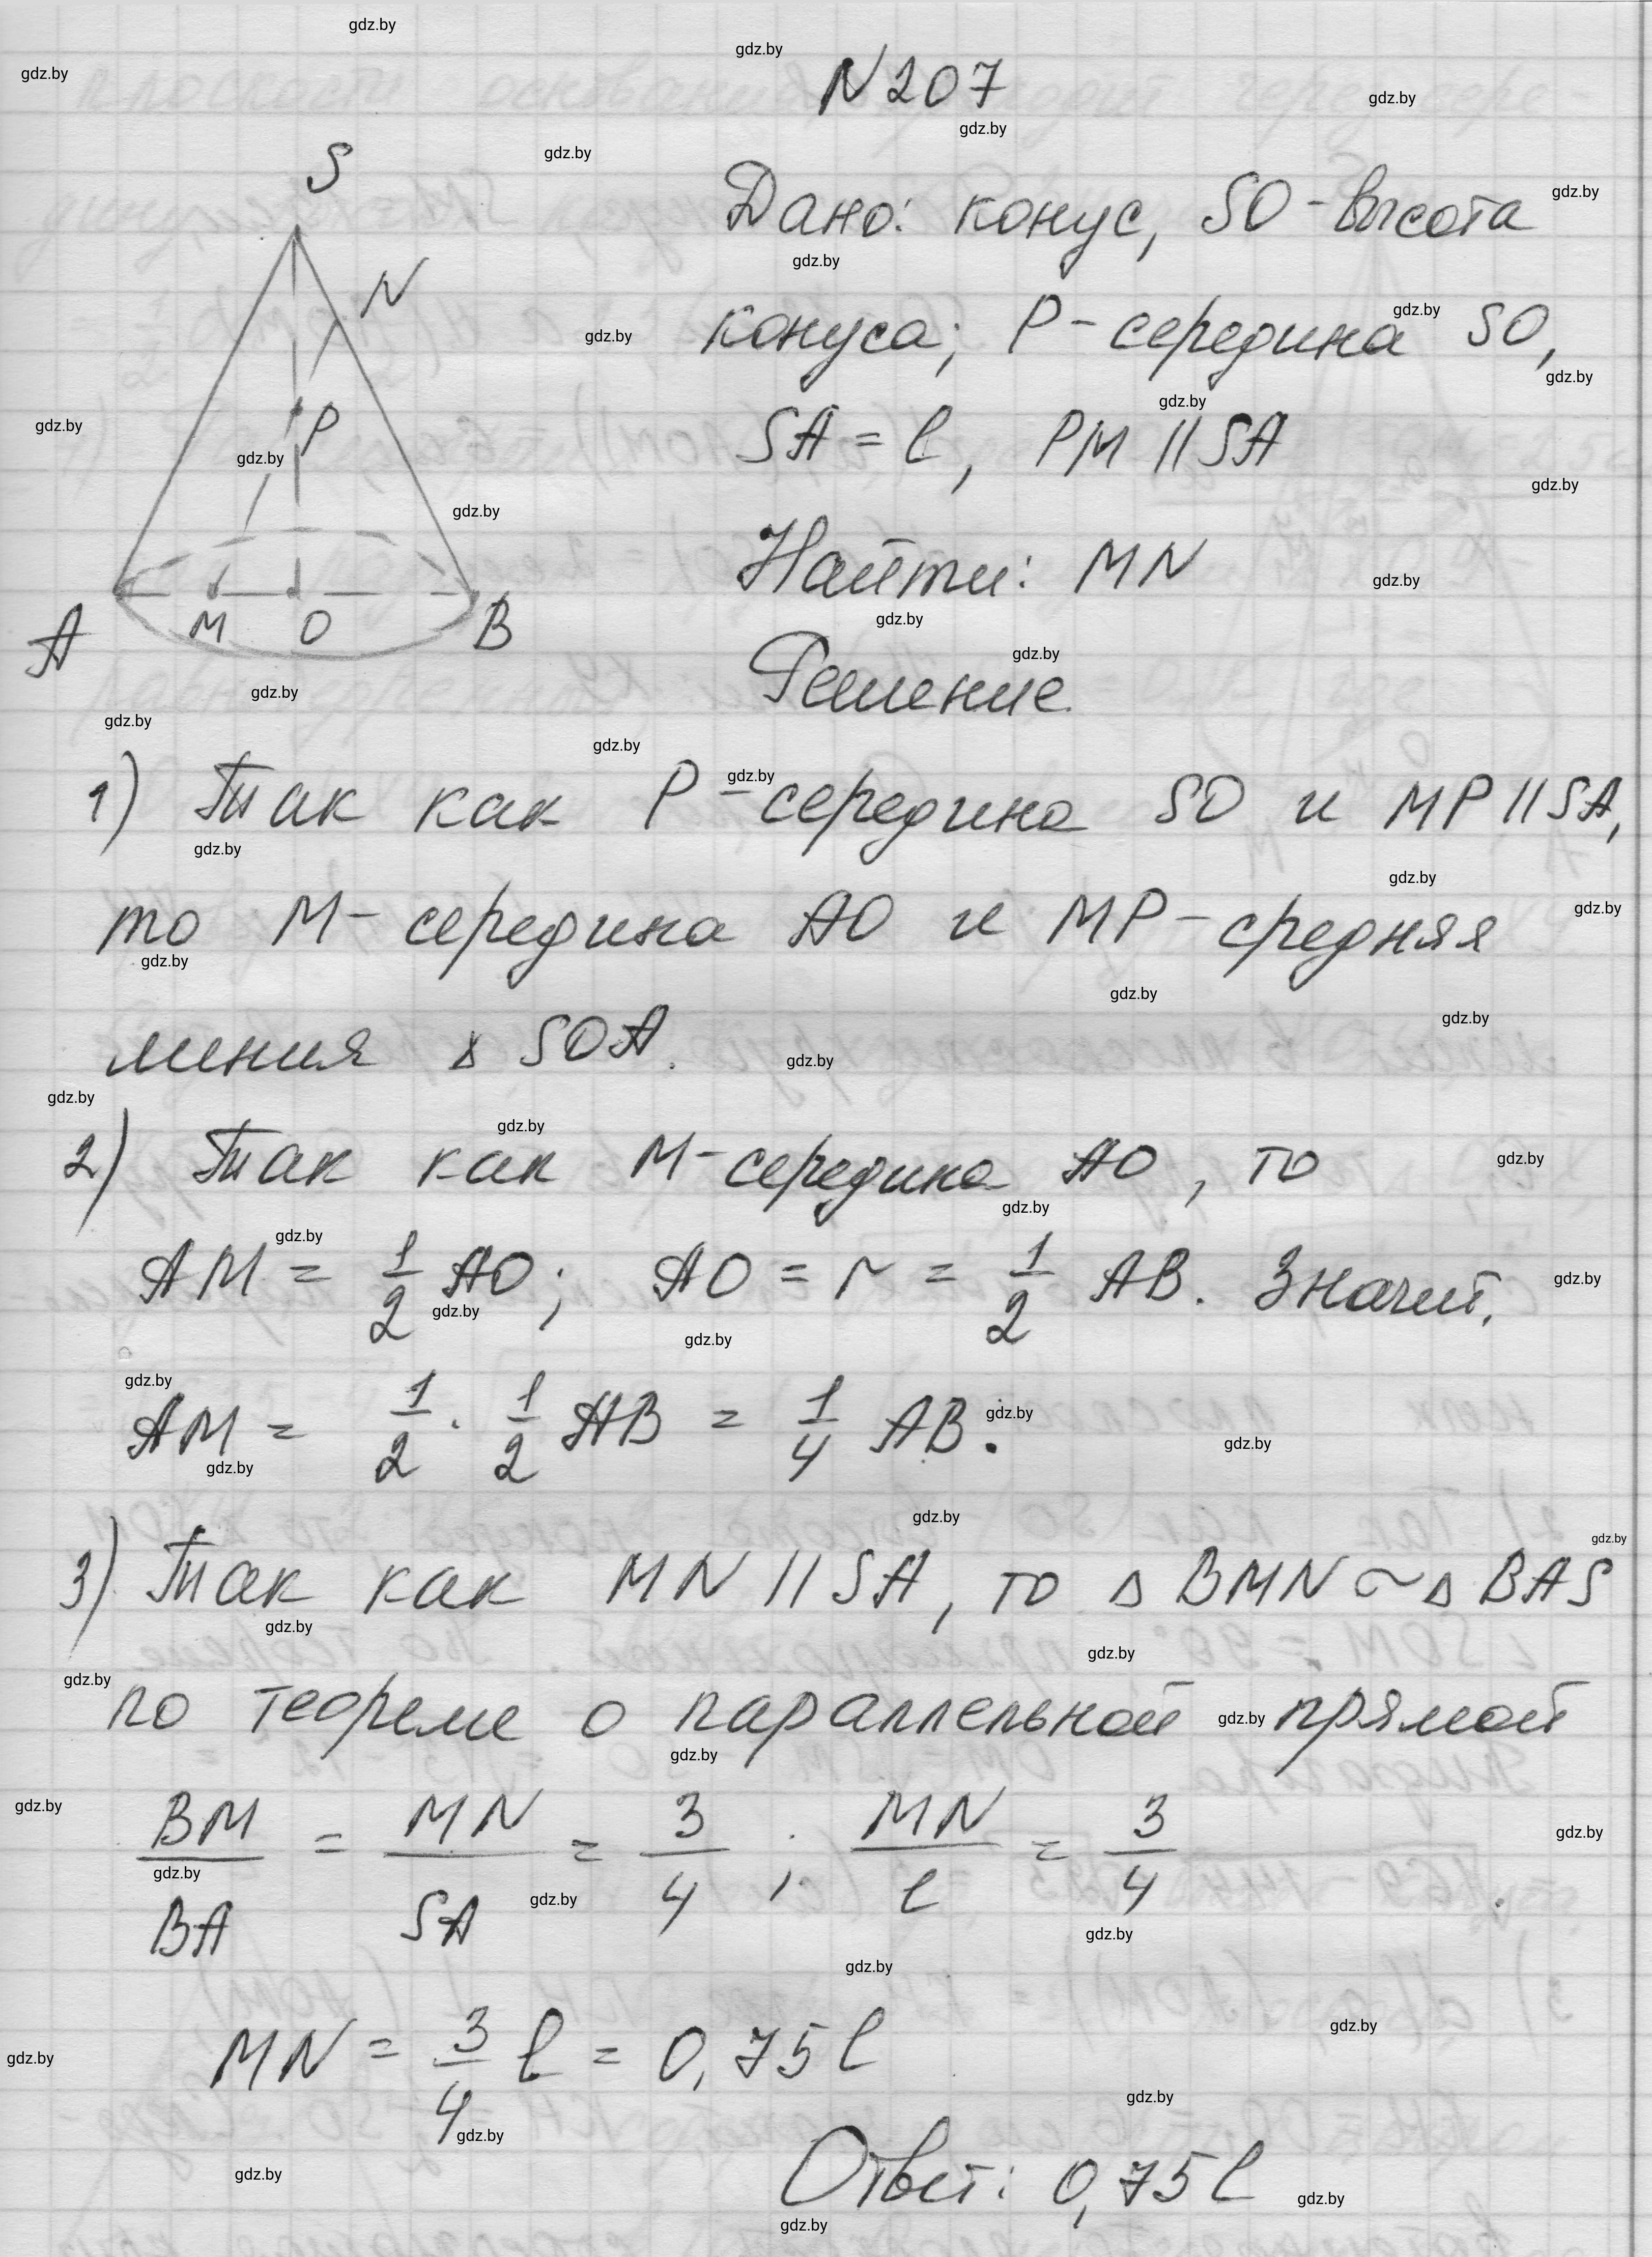 N207
S
N
P
A
M
O
B
Дано: конус, SO - высота
конуса; P - середина SO,
SA = l, PM || SA
Найти: MN
Решение
1) Так как P - середина SO и MP || SA,
то M - середина AO и MP - средняя
линия Δ SOA.
2) Так как M - середина AO, то
AM = 1/2 AO; AO = r = 1/2 AB. Значит,
AM = 1/2 · 1/2 AB = 1/4 AB.
3) Так как MN || SA, то Δ BMN ~ Δ BAS
по теореме о параллельной прямой
BM/BA = MN/SA = 3/4; MN/l = 3/4
MN = 3/4 l = 0,75 l
Ответ: 0,75 l
gdz.by